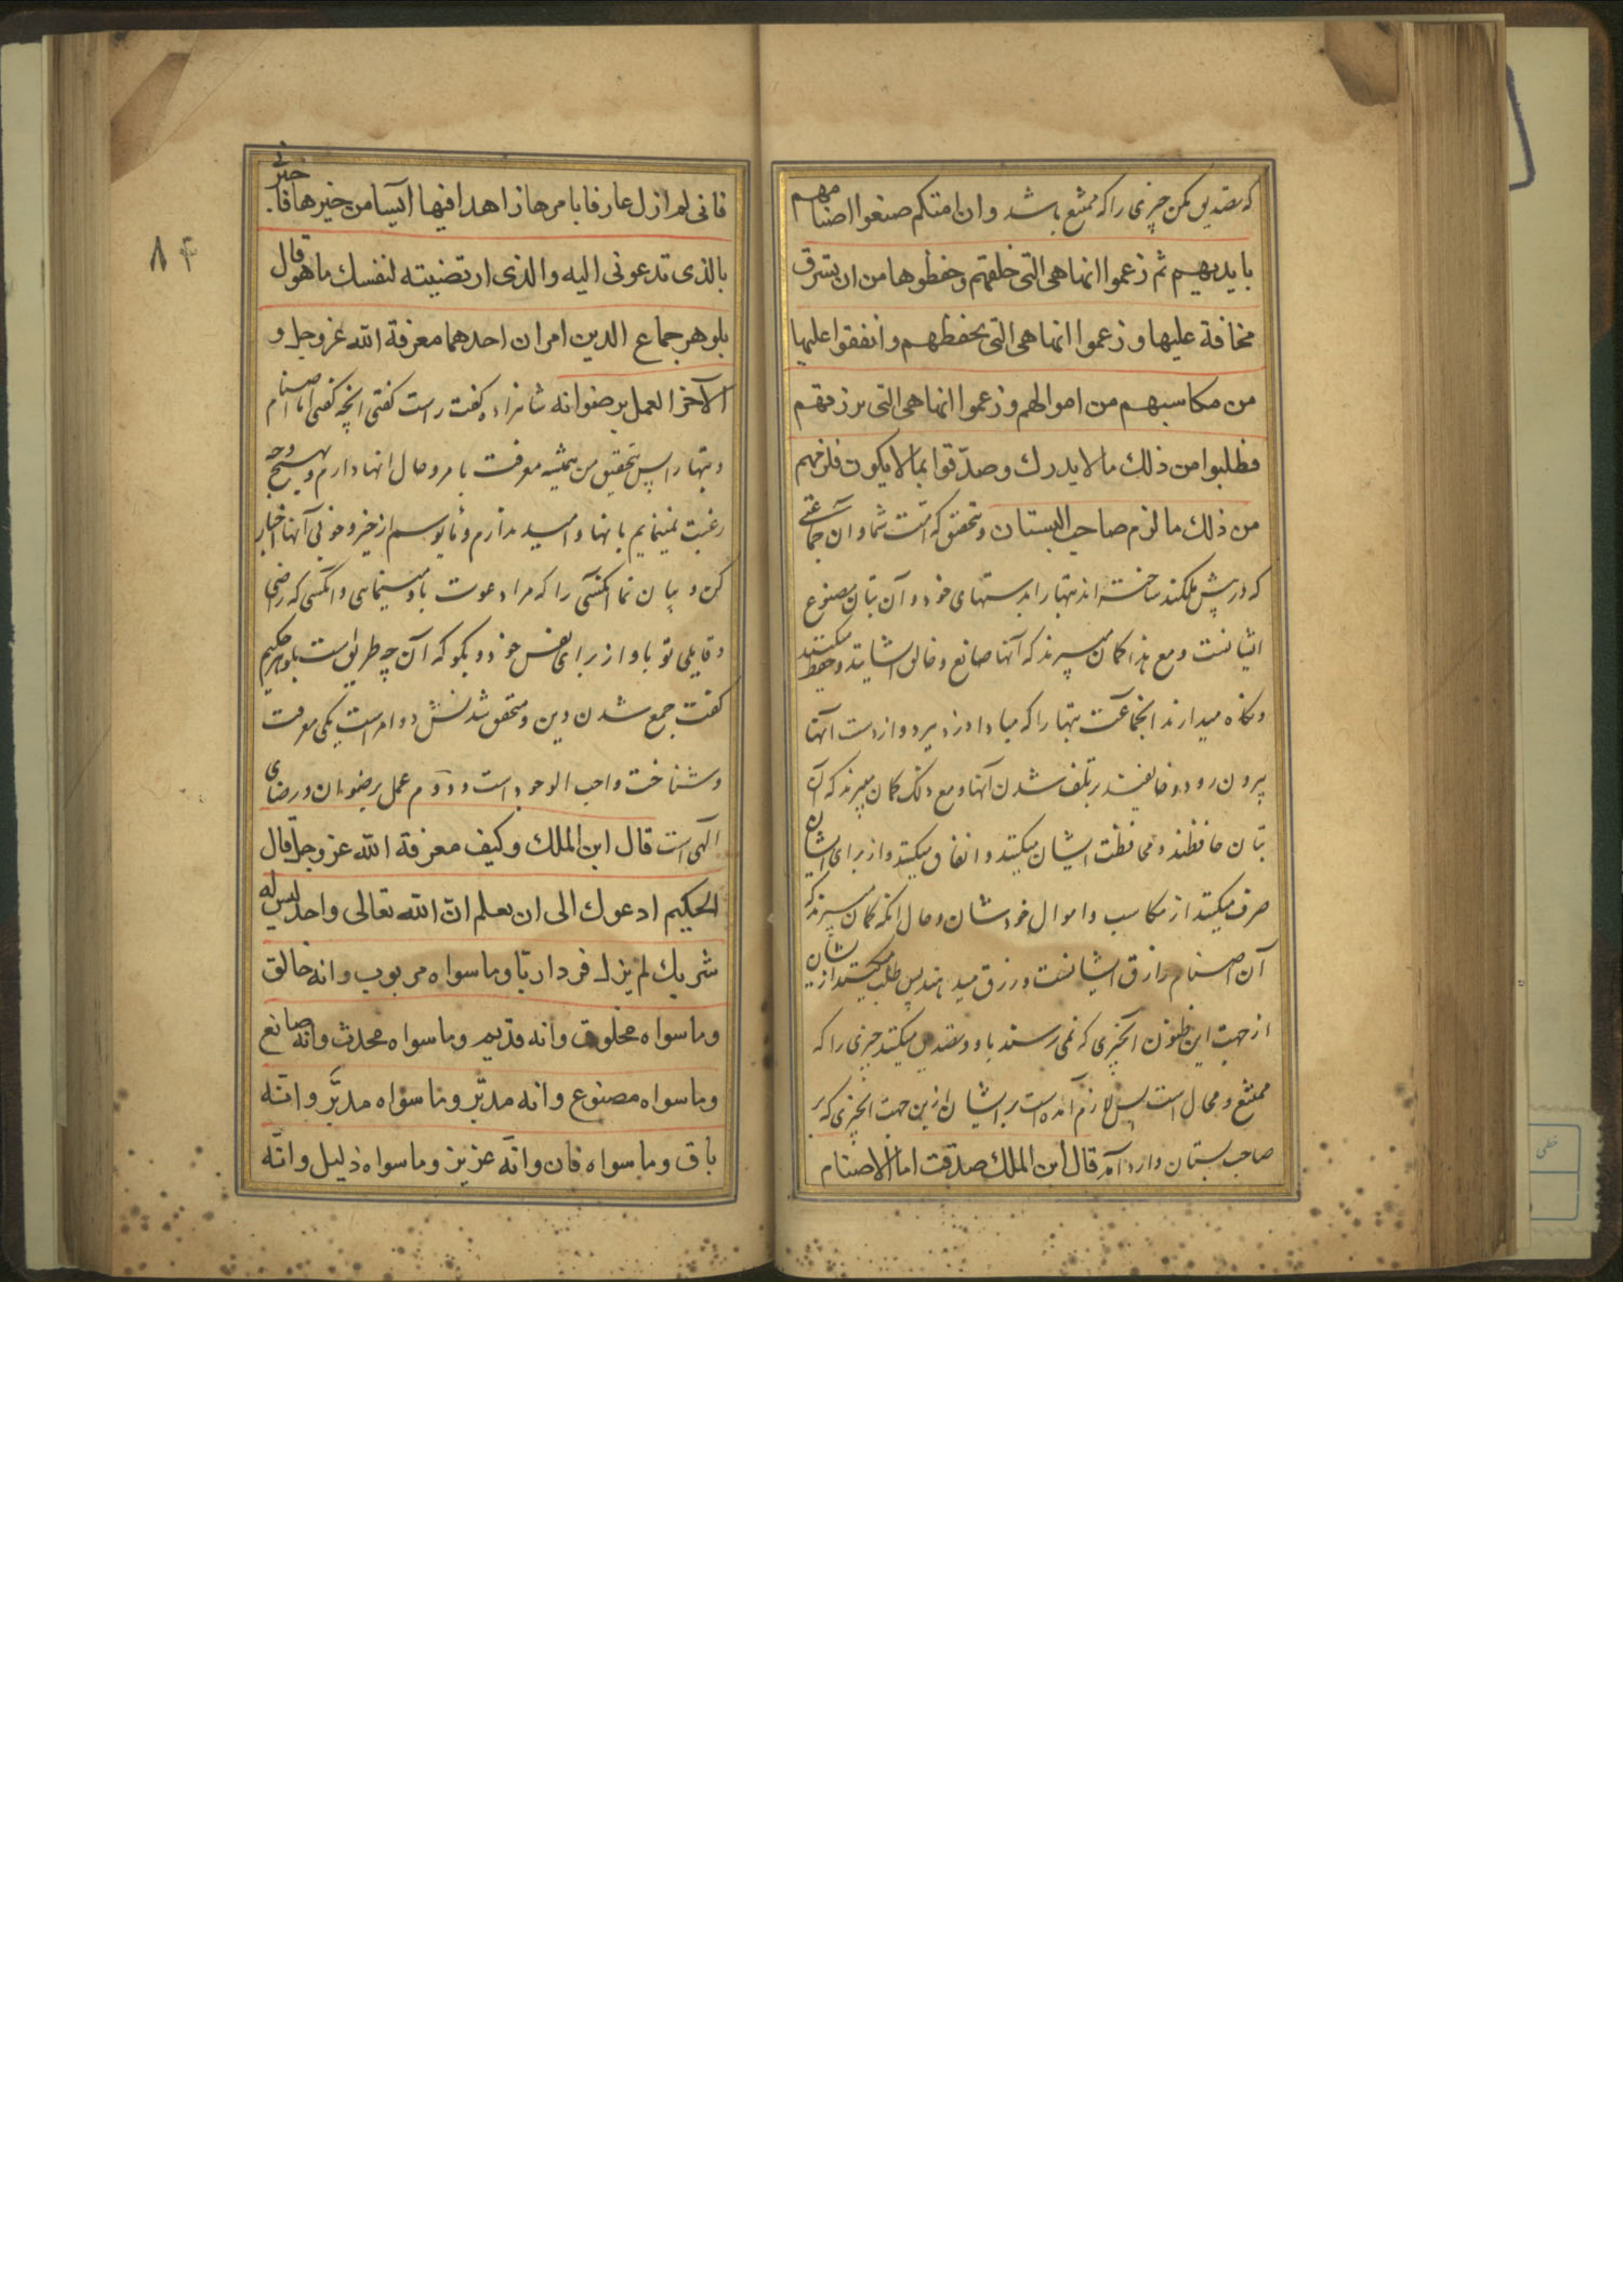 که تصدیق مکن چیزی را که ممتنع باشد وان امتکم صنعوا اصنامهم
بایدیهم ثم زعموا انها هی التی خلقتهم وحفظوها من ان تسرق
مخافة علیها وزعموا انها هی التی تحفظهم وانفقوا علیها
من مکاسبهم من اموالهم وزعموا انها هی التی ترزقهم
فطلبوا من ذلك مالا یدرك وصدّقوا بما لا یکون فلزمهم
من ذلك ما لزم صاحب البستان و متحقق که امت شما و آن جماعتی
که در پیش ملکند ساخته‌اند بتها را بدستهای خود و آن بتان مصنوع
ایشانست و مع هذا کمان میبرند که آنها صانع و خالق ایشانند و حفظ میکنند
و نکاه میدارند انجماعت بتها را که مبادا دزد ببرد و از دست آنها
بیرون رود و خایفند بر تلف شدن آنها و مع ذلک کمان میبرند که آن
بتان حافظند و محافظت ایشان میکنند و انفاق میکنند و از برای ایشان
صرف میکنند از مکاسب و اموال خودشان و حال انکه کمان میبرند که
آن اصنام رازق ایشانست و رزق میدهند پس طلب میکنند از ایشان
از جهت این ظنون انچیزی که نمی رسند باو و تصدیق میکنند چیزی را که
ممتنع و محال است پس لازم آمده است بر ایشان ازین جهت انچیزی که بر
صاحب بستان وارد آمد قال ابن الملك صدقت اما الاصنام
فانی لم ازل عارفا بامرها زاهدا فیها آیسا من خیرها فاخبرنی
بالذی تدعونی الیه والذی ارتضیته لنفسك ما هو قال
بلوهر جماع الدین امران احدهما معرفة الله عز وجل و
الآخر العمل برضوانه شاهزاده کفت راست کفتی انچه کفتی اما اصنام
و بتها را پس بتحقیق من همیشه معرفت بامر و حال انها دارم و بهیچ وجه
رغبت نمینمایم بانها و امید ندارم و مأیوسم از خیر و خوبی آنها اخبار
کن و بیان نما انکسی را که مرا دعوت باو مینمایی و انکسی که راضی
و قایلی تو باو از برای نفس خود و بکو که آن چه طریق است بلوهر حکیم
کفت جمع شدن دین و متحقق شدنش دو امر است یکی معرفت
و شناخت واجب الوجود است و دوم عمل برضوان و رضای
الهی است قال ابن الملك وکیف معرفة الله عز وجل قال
الحکیم ادعوك الی ان تعلم انّ الله تعالی واحد لیس له
شریك لم یزل فردا ربّا وما سواه مربوب وانه خالق
وما سواه مخلوق وانه قدیم وما سواه محدث وانه صانع
وما سواه مصنوع وانه مدبّر وما سواه مدبَّر وانّه
باق وما سواه فان وانّه عزیز وما سواه ذلیل وانّه
۸۴
خطی